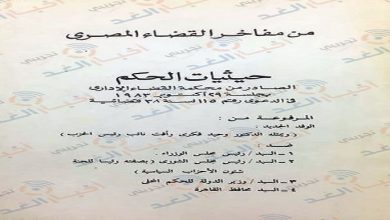 من مفاخر القضاء المصرى
حيثيات الحكم
الصادر من محكمة القضاء الإدارى
بجلسة ٢٩ أكتوبر ١٩٨٣
فى الدعوى رقم ١١٥ لسنة ٣٨ قضائية
المرفوعة من :
الوفد الجديد :
( ويمثله الدكتور وحيد فكرى رأفت نائب رئيس الحزب )
ضد :
١ - السيد / رئيس مجلس الوزراء .
٢ - السيد / رئيس مجلس الشورى ( بصفته رئيسا للجنة
شئون الأحزاب السياسية )
٣ - السيد / وزير الدولة للحكم المحلى
٤ - السيد محافظ القاهرة